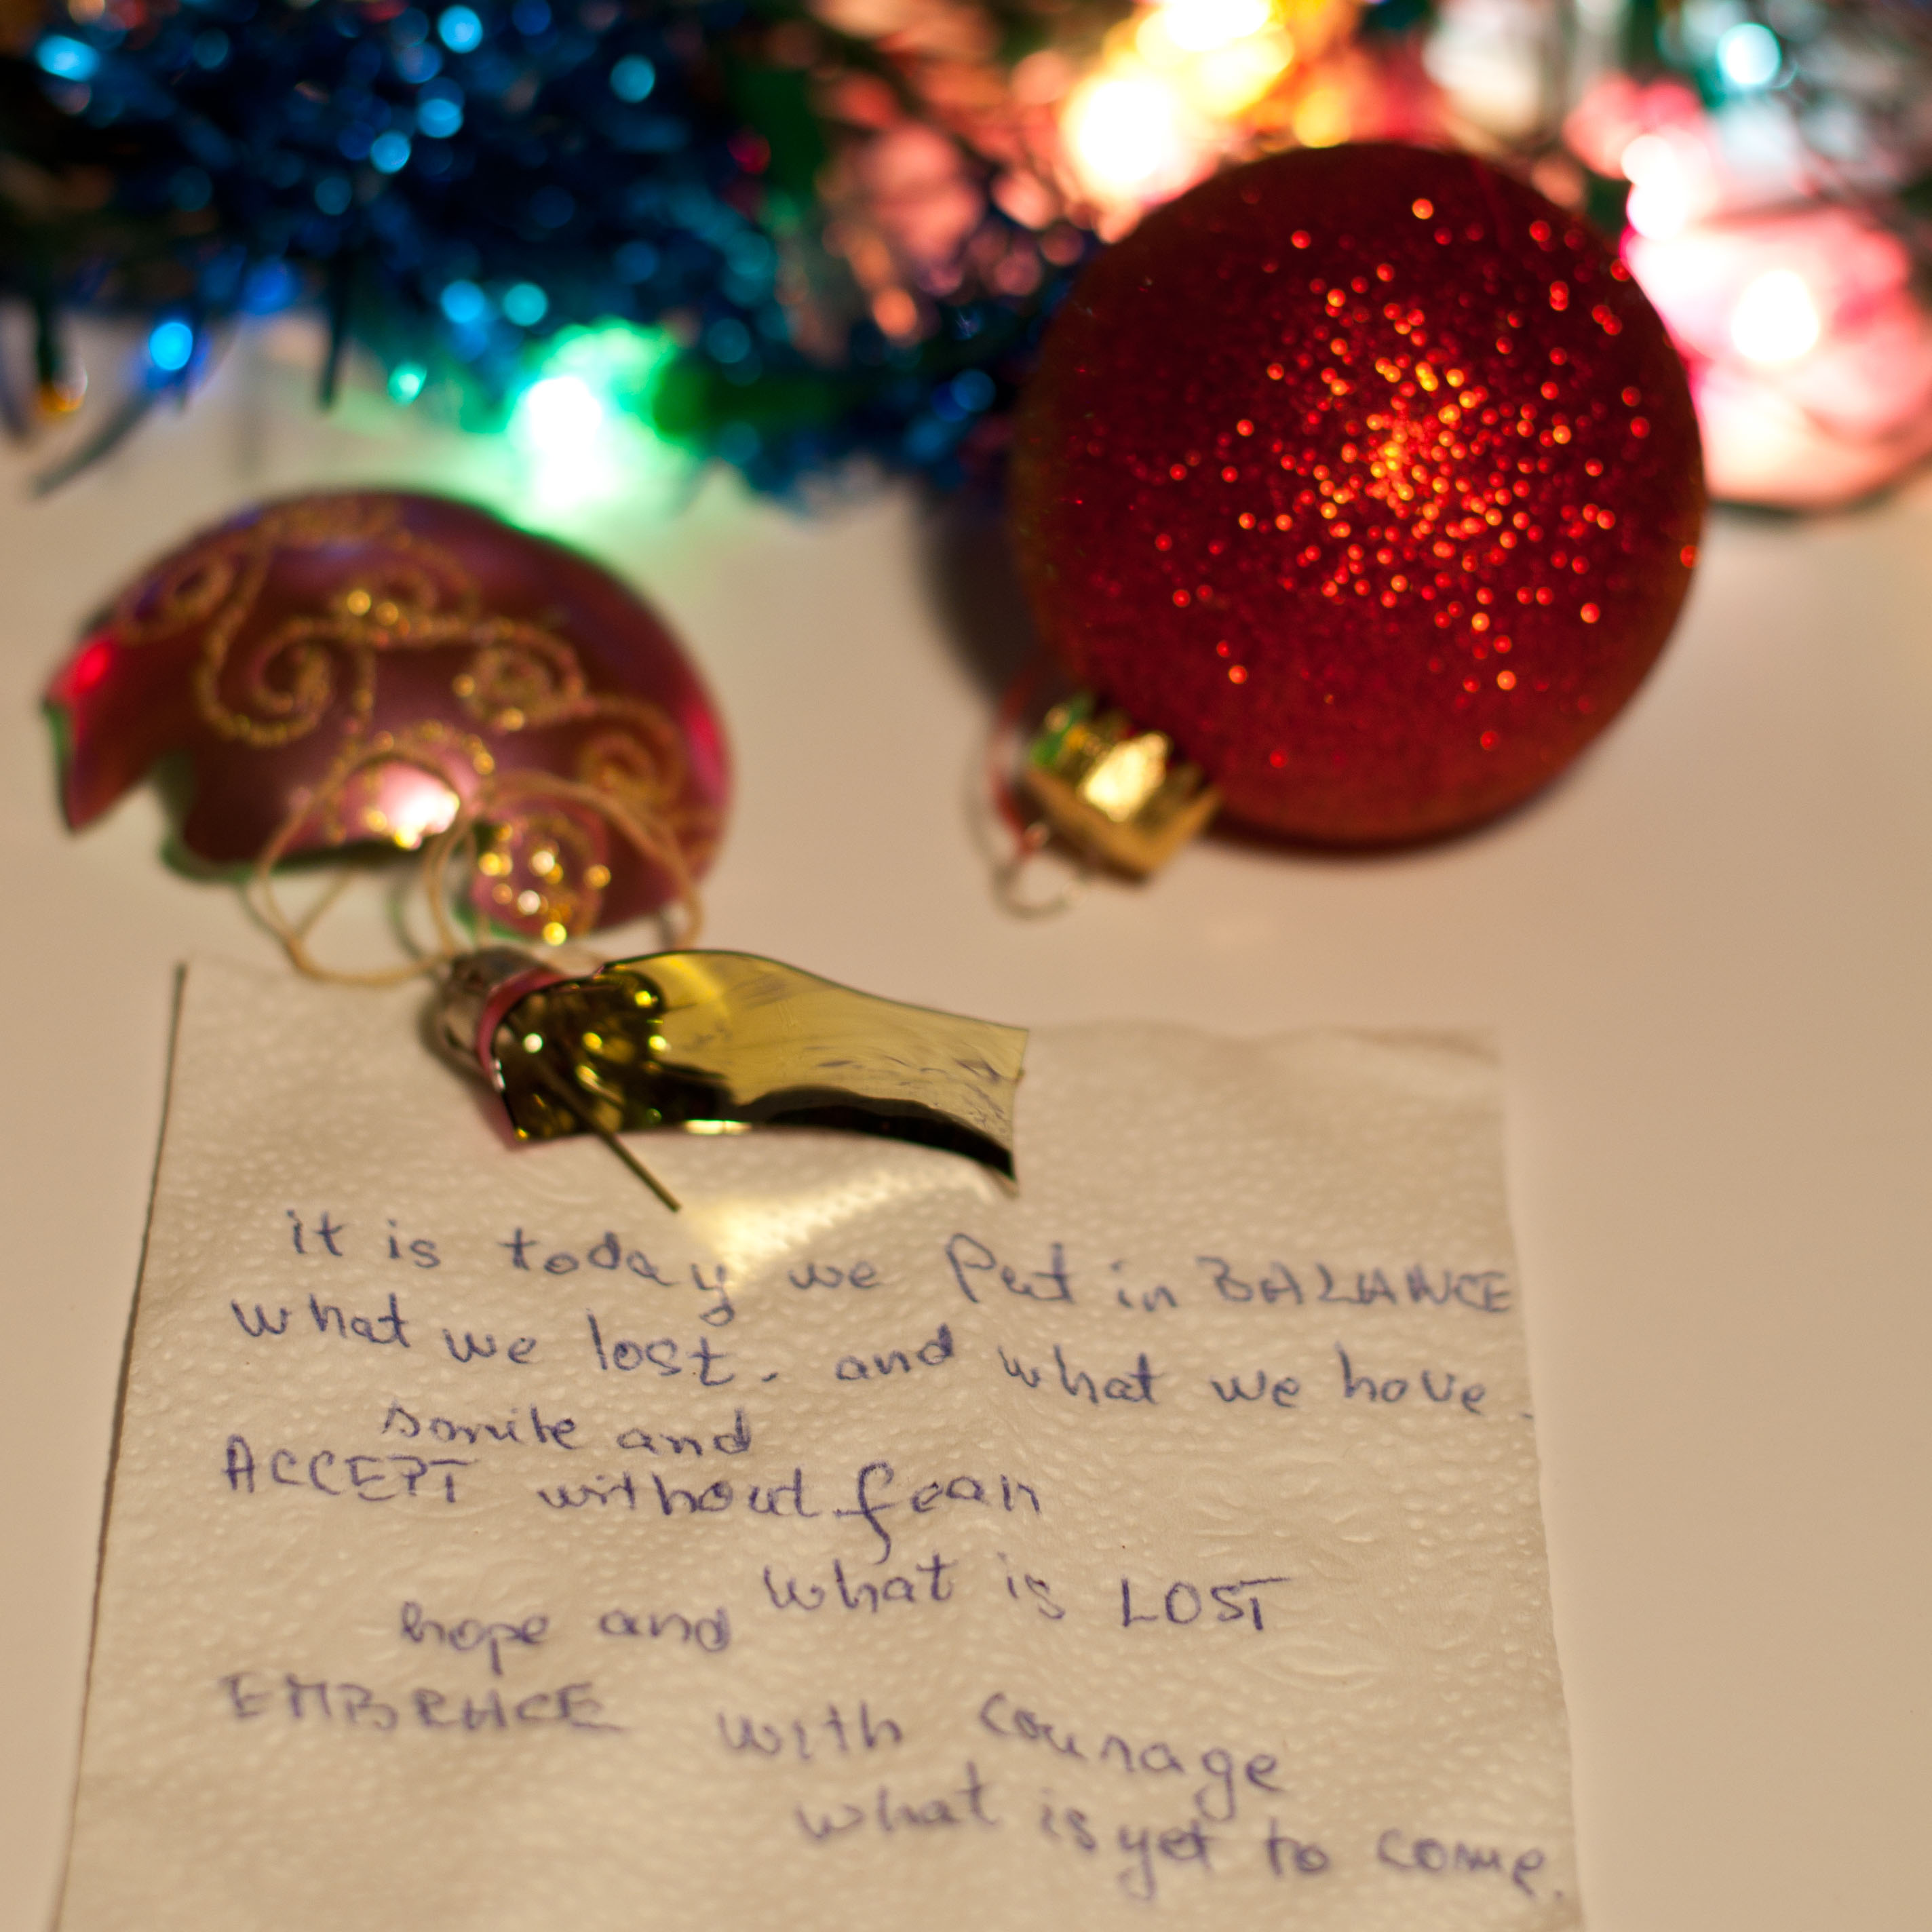 it is today we Put in BALANCE
what we lost. and what we have.
smile and
ACCEPT without fear
what is LOST
hope and
EMBRACE with courage
what is yet to come.